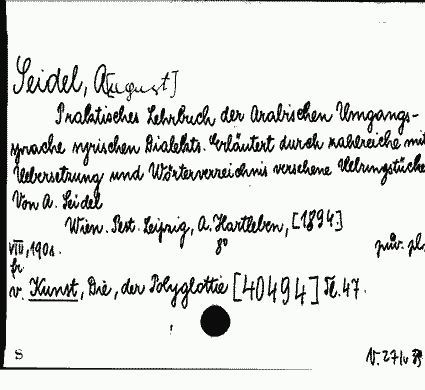 Seidel, A[ugust]
Praktisches Lehrbuch der Arabischen Umgangs-
sprache syrischen Dialekts. Erläutert durch zahlreiche mit
Uebersetzung und Wörterverzeichnis versehene Uebungstücke
Von A. Seidel
Wien. Pest. Leipzig, A. Hartleben, [1894]
VIII, 190 s. 8°
fr
v. Kunst, Die, der Polyglottie [40494] Tl. 47.
S